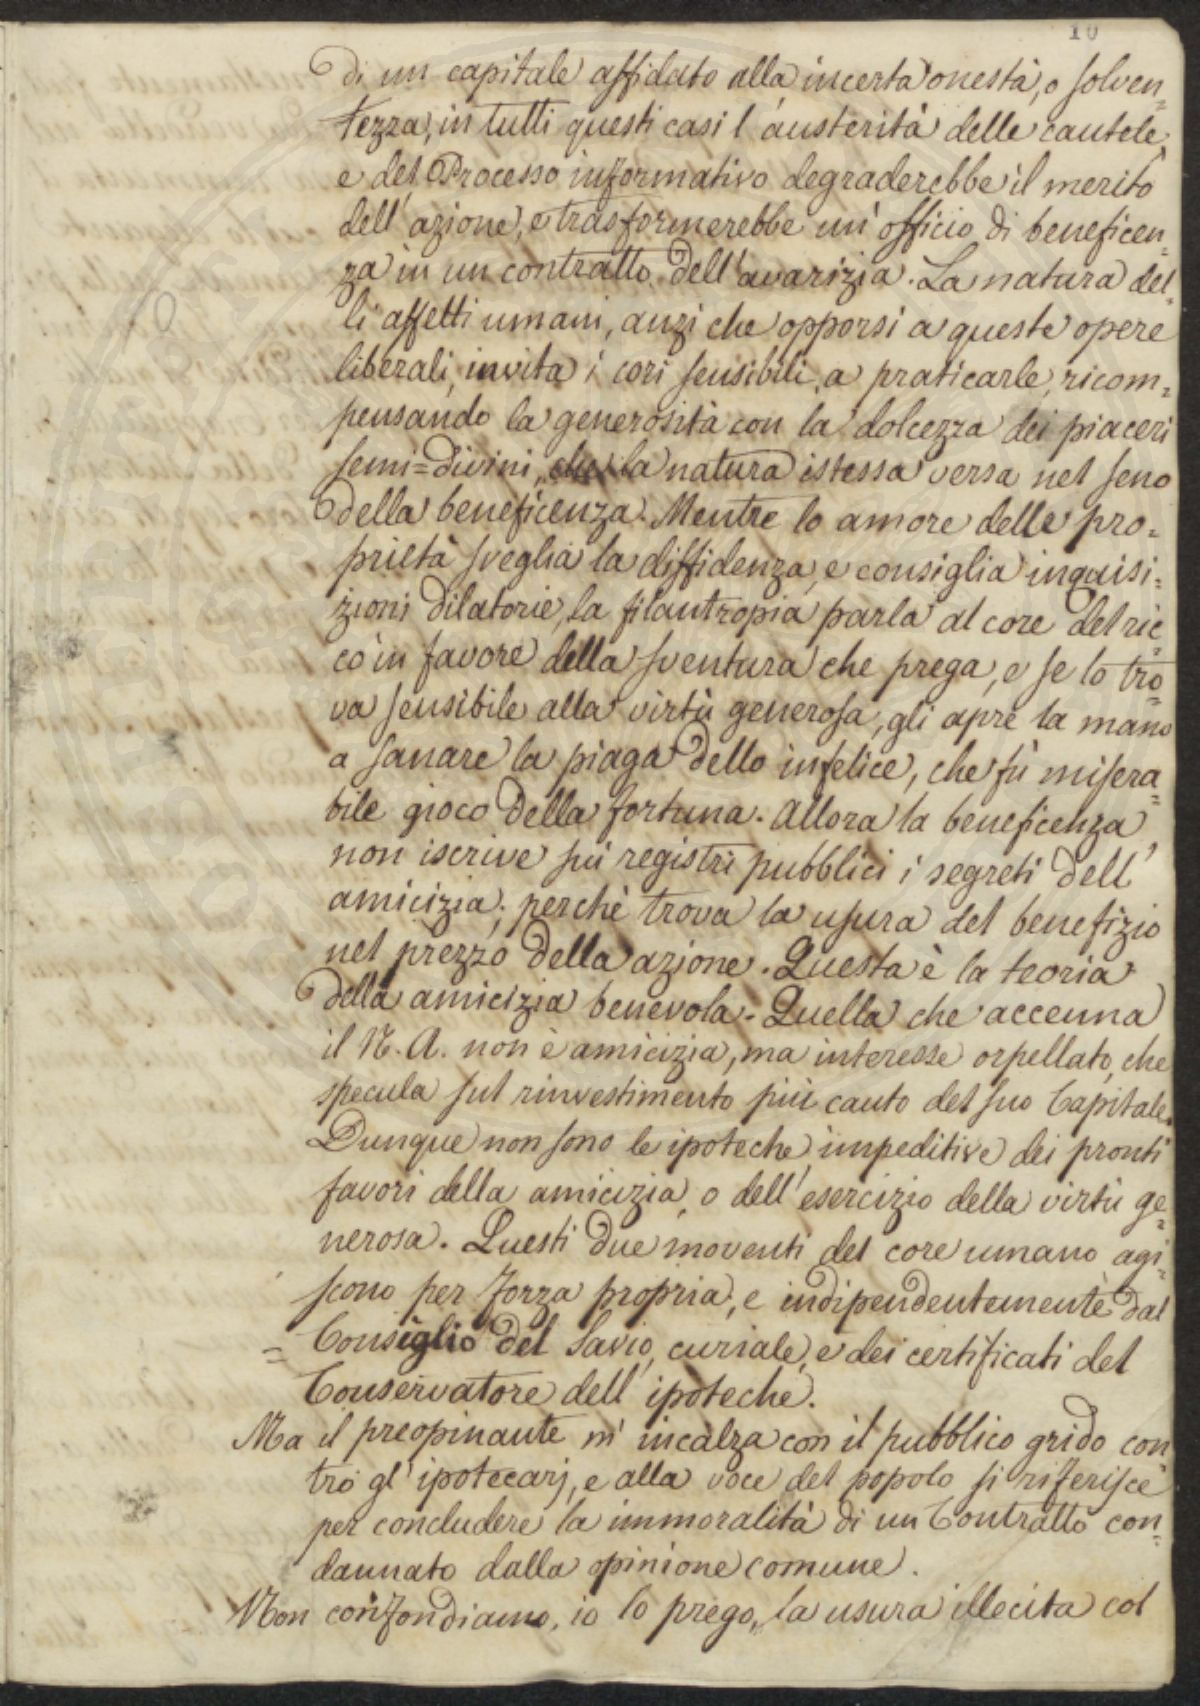 10
di un capitale affidato alla incerta onestà, o solven=
tezza, in tutti questi casi l'austerità delle cautele,
e del Processo informativo degraderebbe il merito
dell'azione, e trasformerebbe un'officio di beneficen=
za in un contratto dell'avarizia. La natura del=
li affetti umani, anzi che opporsi a queste opere
liberali, invita i cori sensibili a praticarle, ricom=
pensando la generosità con la dolcezza dei piaceri
semi=divini, che la natura istessa versa nel seno
della beneficenza. Mentre lo amore delle pro=
prietà sveglia la diffidenza, e consiglia inquisi=
zioni dilatorie, la filantropia parla al core del ric=
co in favore della sventura che prega, e se lo tro=
va sensibile alla virtù generosa, gli apre la mano
a sanare la piaga dello infelice, che fù misera=
bile gioco della fortuna. Allora la beneficenza
non iscrive sù registri pubblici i segreti dell'
amicizia; perchè trova la usura del benefizio
nel prezzo della azione. Questa è la teoria
della amicizia benevola. Quella che accenna
il N. A. non è amicizia, ma interesse orpellato, che
specula sul rinvestimento più cauto del suo Capitale.
Dunque non sono le ipoteche impeditive dei pronti
favori della amicizia, o dell'esercizio della virtù ge=
nerosa. Questi due moventi del core umano agi=
scono per forza propria, e indipendentemente dal
= Consiglio del Savio, curiale, e dei certificati del
Conservatore dell'ipoteche.
Ma il preopinante m'incalza con il pubblico grido con
tro gl'ipotecarj, e alla voce del popolo si riferisce
per concludere la immoralità di un Contratto con=
dannato dalla opinione comune.
Non confondiamo, io lo prego, la usura illecita col